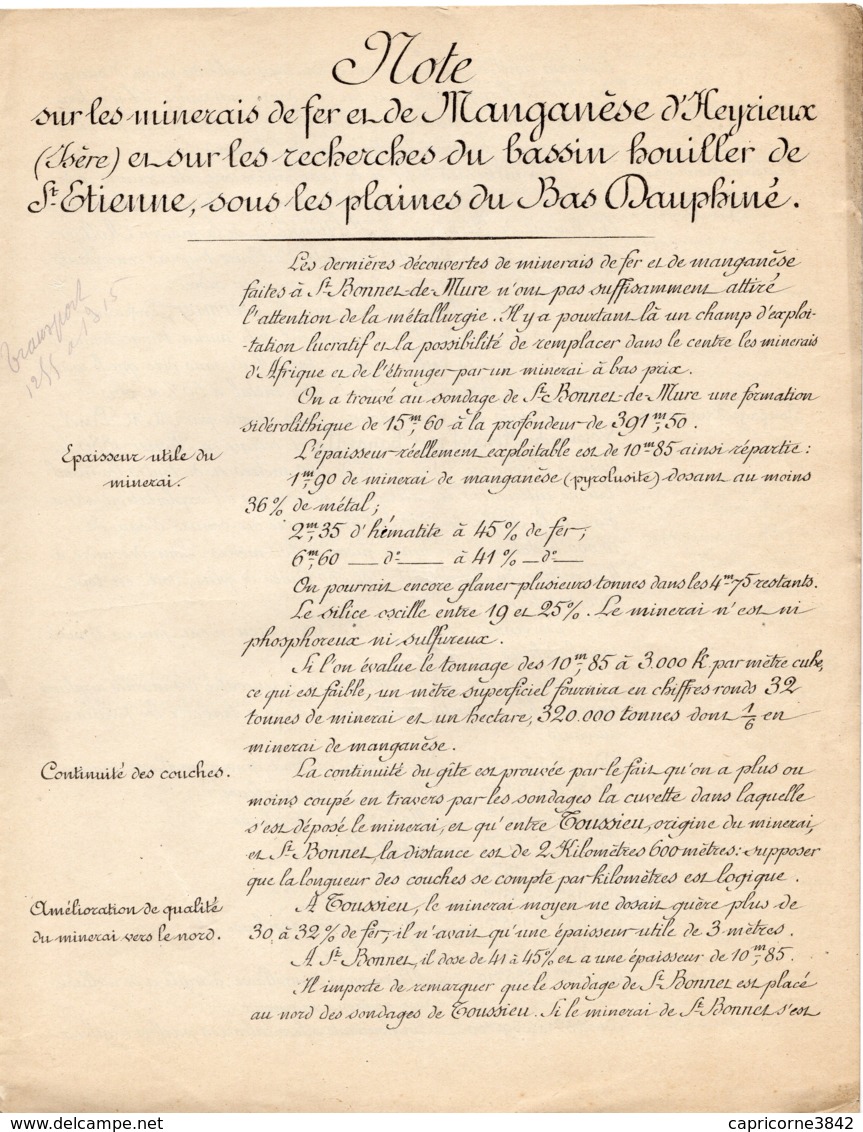 Note
sur les minerais de fer et de Manganèse d'Heyrieux
(Isère) et sur les recherches du bassin houiller de
St. Etienne, sous les plaines du Bas Dauphiné.
Les dernières découvertes de minerais de fer et de manganèse
faites à St. Bonnet-de-Mure n'ont pas suffisamment attiré
l'attention de la métallurgie. Il y a pourtant là un champ d'exploi-
-tation lucratif et la possibilité de remplacer dans le centre les minerais
d'Afrique et de l'étranger par un minerai à bas prix.
On a trouvé au sondage de St. Bonnet-de-Mure une formation
sidérolithique de 15m,60 à la profondeur de 391m,50.
Transport
1255 à 1315
Epaisseur utile du
minerai.
L'épaisseur réellement exploitable est de 10m85 ainsi répartie :
1m,90 de minerai de manganèse (pyrolusite) dosant au moins
36% de métal;
2m,35 d'hématite à 45% de fer;
6m,60 — do — à 41% — do —
On pourrait encore glaner plusieurs tonnes dans les 4m75 restants.
Le silice oscille entre 19 et 25%. Le minerai n'est ni
phosphoreux ni sulfureux.
Si l'on évalue le tonnage des 10m,85 à 3.000 k. par mètre cube,
ce qui est faible, un mètre superficiel fournira en chiffres ronds 32
tonnes de minerai et un hectare, 320.000 tonnes dont 1/6 en
minerai de manganèse.
Continuité des couches.
La continuité du gîte est prouvée par le fait qu'on a plus ou
moins coupé en travers par les sondages la cuvette dans laquelle
s'est déposé le minerai, et qu'entre Toussieu, origine du minerai,
et St. Bonnet, la distance est de 2 Kilomètres 600 mètres: supposer
que la longueur des couches se compte par kilomètres est logique.
Amélioration de qualité
du minerai vers le nord.
A Toussieu, le minerai moyen ne dosait guère plus de
30 à 32% de fer; il n'avait qu'une épaisseur utile de 3 mètres.
A St. Bonnet, il dose de 41 à 45% et a une épaisseur de 10m,85.
Il importe de remarquer que le sondage de St. Bonnet est placé
au nord des sondages de Toussieu. Si le minerai de St. Bonnet s'est
www.delcampe.net
capricorne3842